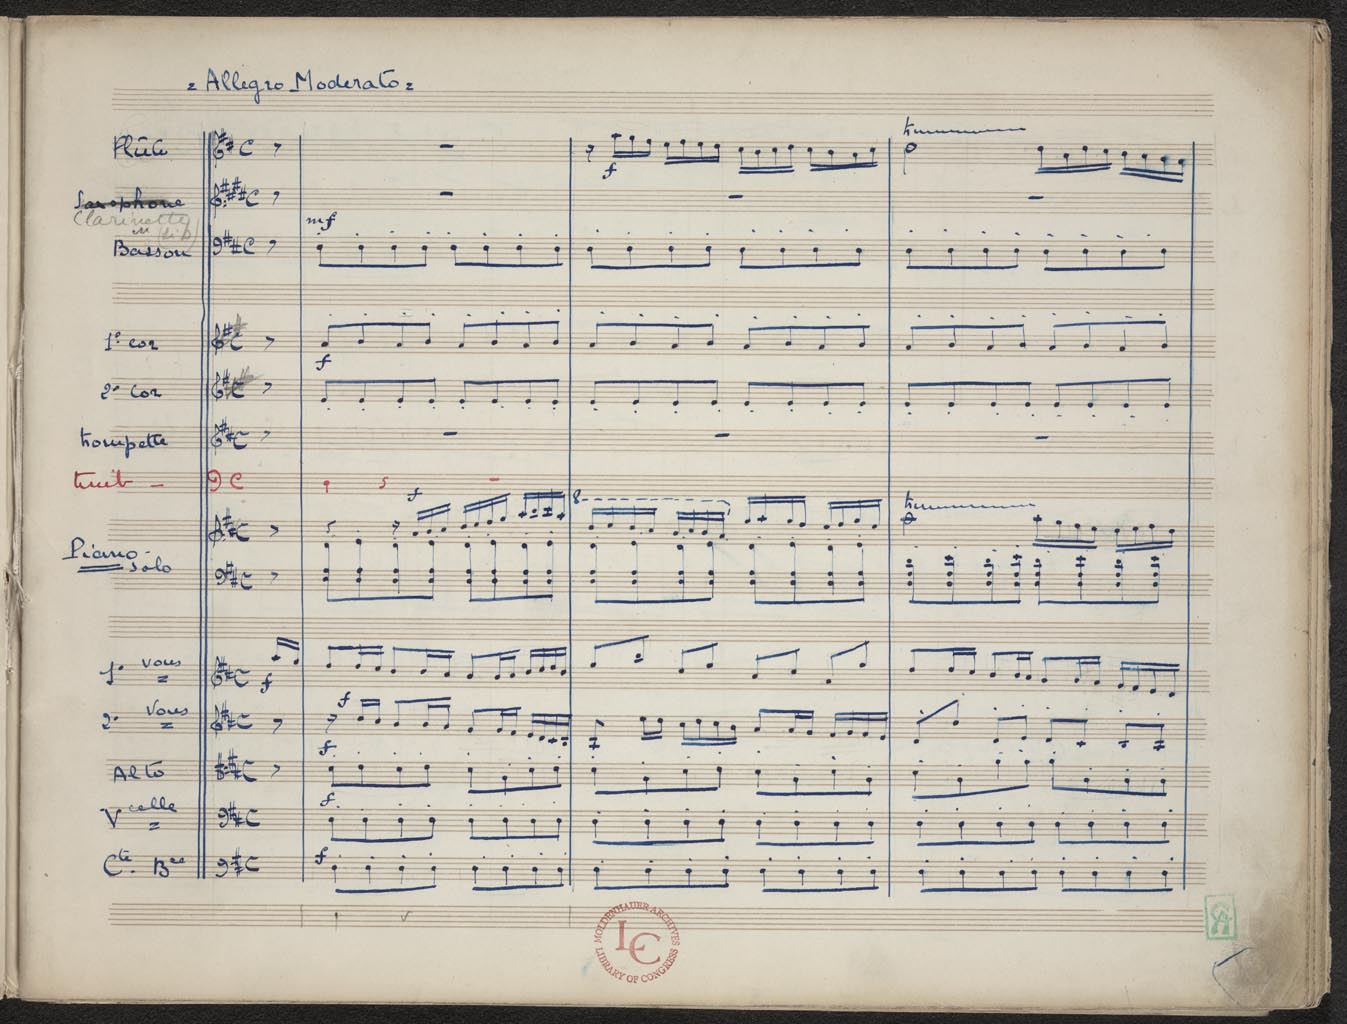 = Allegro Moderato =
Flûte
Saxophone
Clarinette
(si b)
Basson
mf
f
1º cor
f
2º Cor
trompette
timb -
f
8
Piano
Solo
1º vons
f
2º Vons
f
Alto
f
Vcelle
f
Cte. Bse
f
MOLDENHAUER ARCHIVES
LC
LIBRARY OF CONGRESS